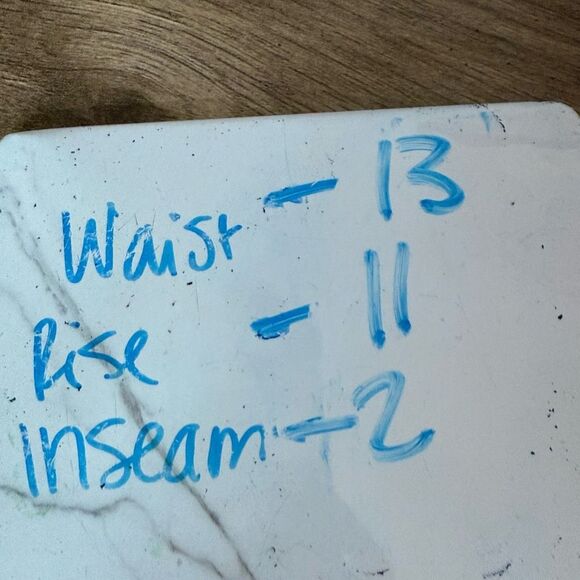 Waist - 13
Rise - 11
Inseam - 2